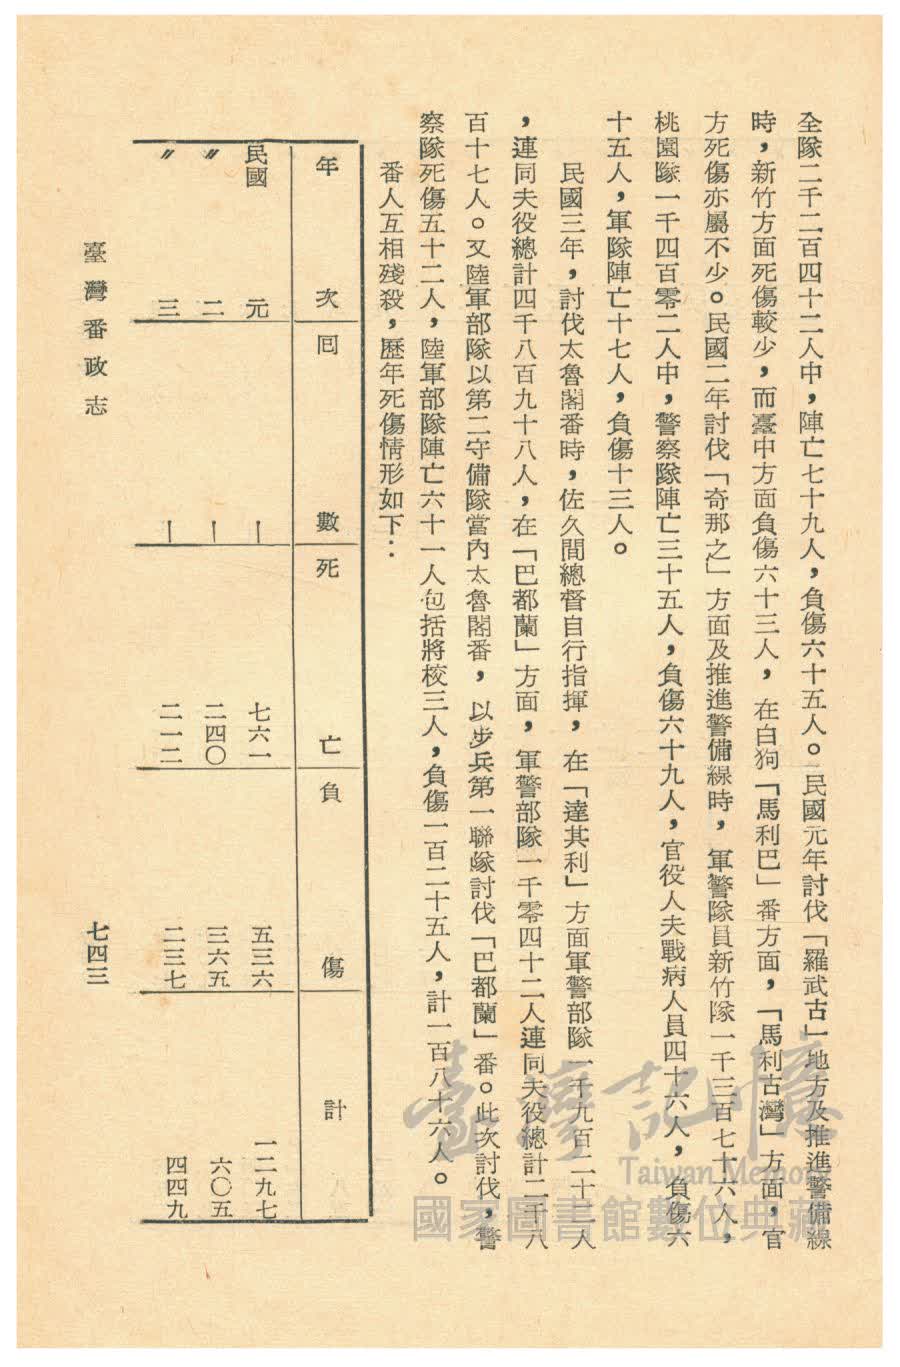 全隊二千二百四十二人中，陣亡七十九人，負傷六十五人。民國元年討伐「羅武古」地方及推進警備線
時，新竹方面死傷較少，而臺中方面負傷六十三人，在白狗「馬利巴」番方面，「馬利古灣」方面，官
方死傷亦屬不少。民國二年討伐「奇那之」方面及推進警備線時，軍警隊員新竹隊一千三百七十六人，
桃園隊一千四百零二人中，警察隊陣亡三十五人，負傷六十九人，官役人夫戰病人員四十六人，負傷六
十五人，軍隊陣亡十七人，負傷十三人。
民國三年，討伐太魯閣番時，佐久間總督自行指揮，在「達其利」方面軍警部隊一千九百二十二人
，連同夫役總計四千八百九十八人，在「巴都蘭」方面，軍警部隊一千零四十二人連同夫役總計二千八
百十七人。又陸軍部隊以第二守備隊當內太魯閣番，以步兵第一聯隊討伐「巴都蘭」番。此次討伐，警
察隊死傷五十二人，陸軍部隊陣亡六十一人包括將校三人，負傷一百二十五人，計一百八十六人。
番人互相殘殺，歷年死傷情形如下：
年次 回數 死亡 負傷 計
民國元 － 七六一 五三六 一二九七
〃二 － 二四〇 三六五 六〇五
〃三 － 二一二 二三七 四四九
臺灣番政志
七四三
臺灣記憶
Taiwan Memory
國家圖書館數位典藏